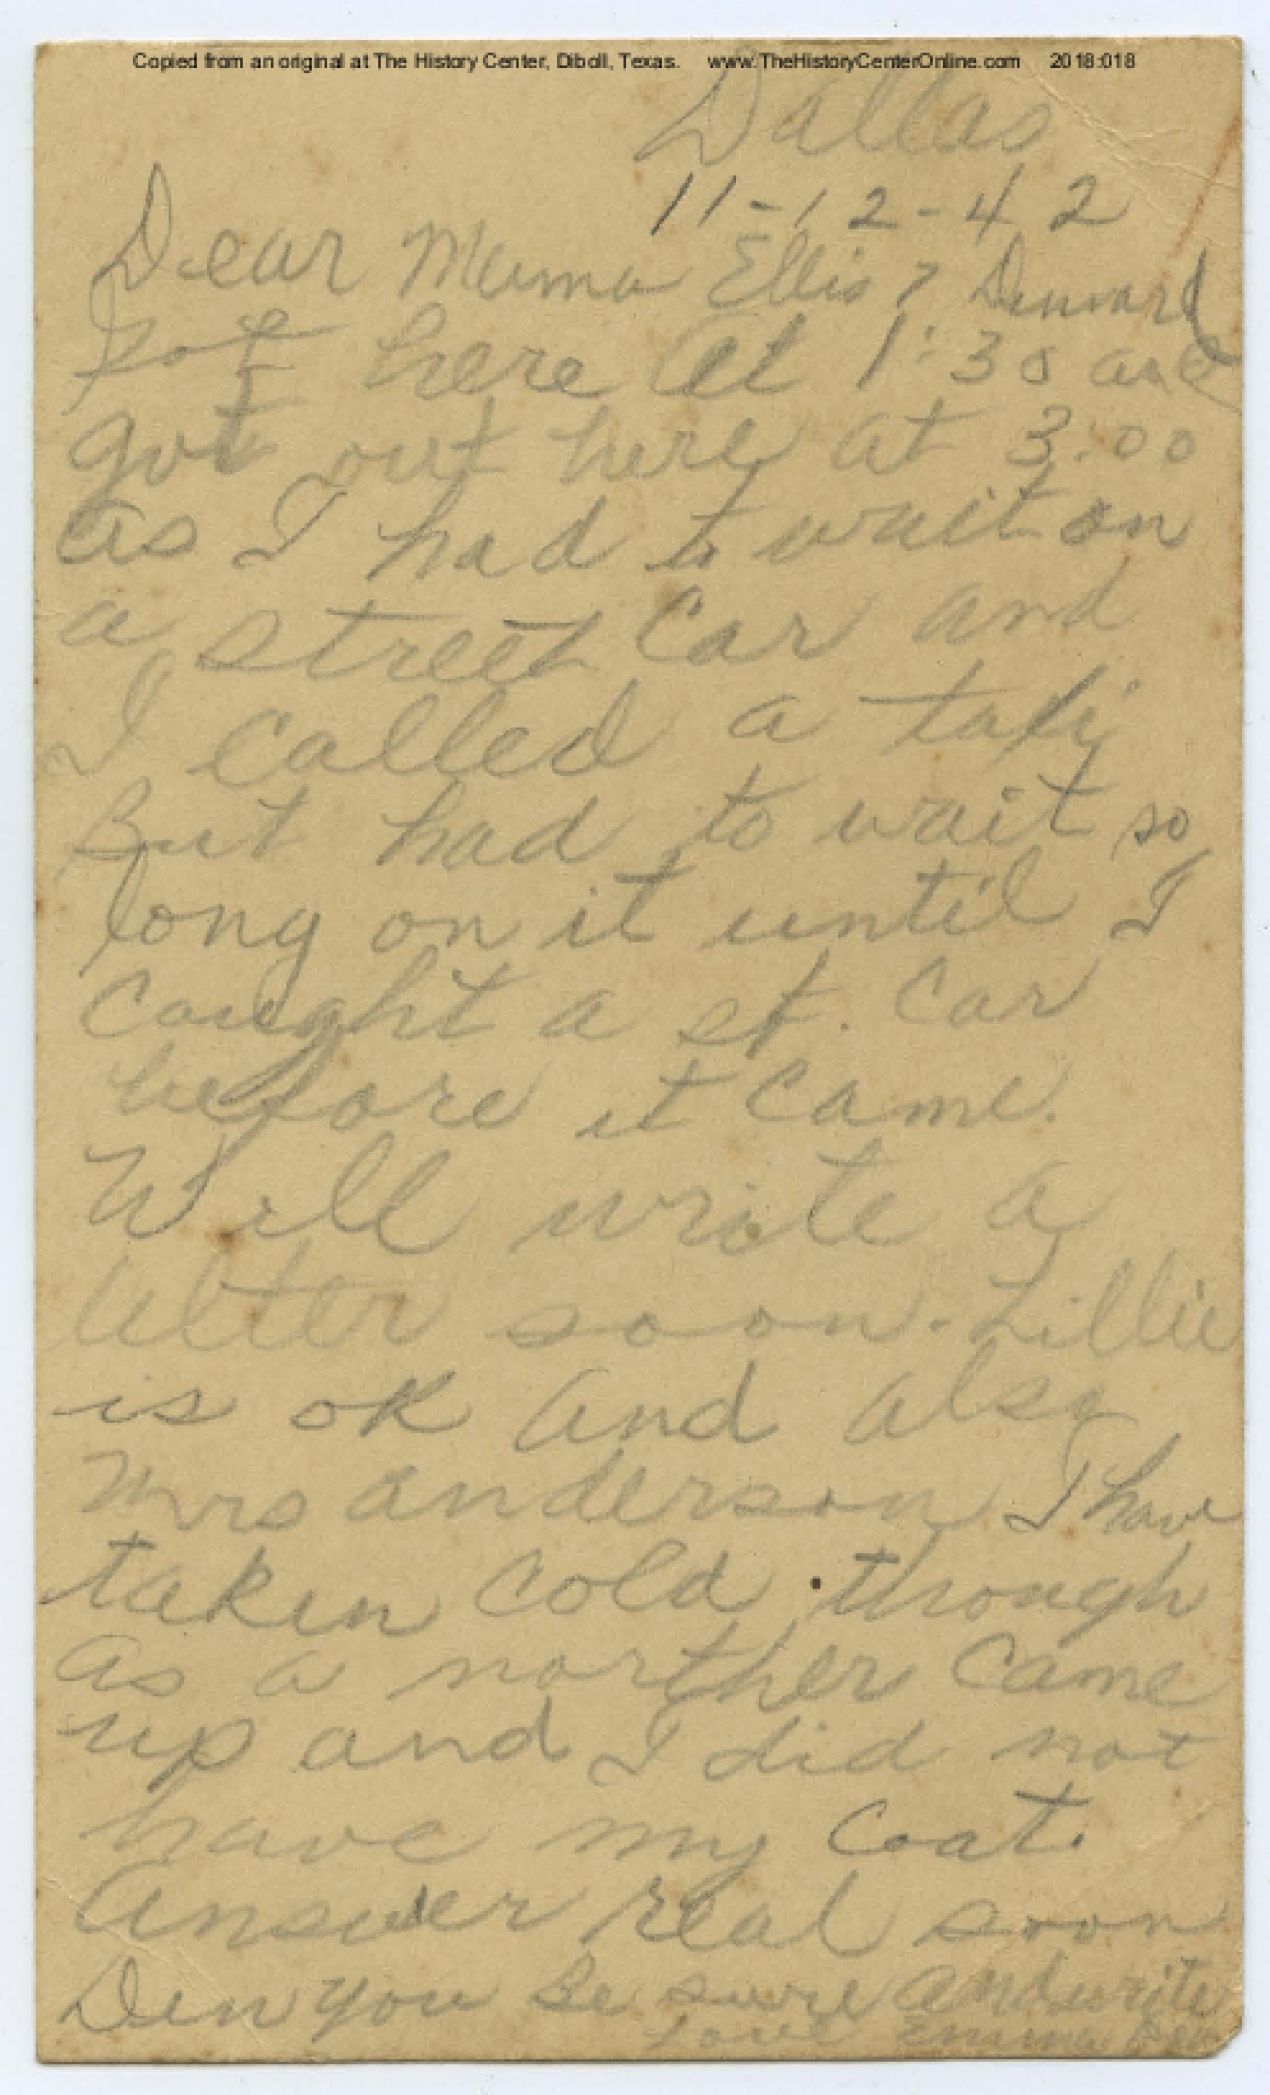 Copied from an original at The History Center, Diboll, Texas. www.TheHistoryCenterOnline.com 2018:018
Dallas
11-12-42
Dear Mama Ellis &
Got here at 1:30 and
got out here at 3:00
as I had to wait on
a street car and
I called a taxi
But had to wait so
long on it until I
caught a st. car
before it came.
Will write a
letter soon. Lillie
is ok and also
Mrs anderson I have
taken cold though
as a norther came
up and I did not
have my coat.
Answer real soon
Den you Be sure and write
Love Emma